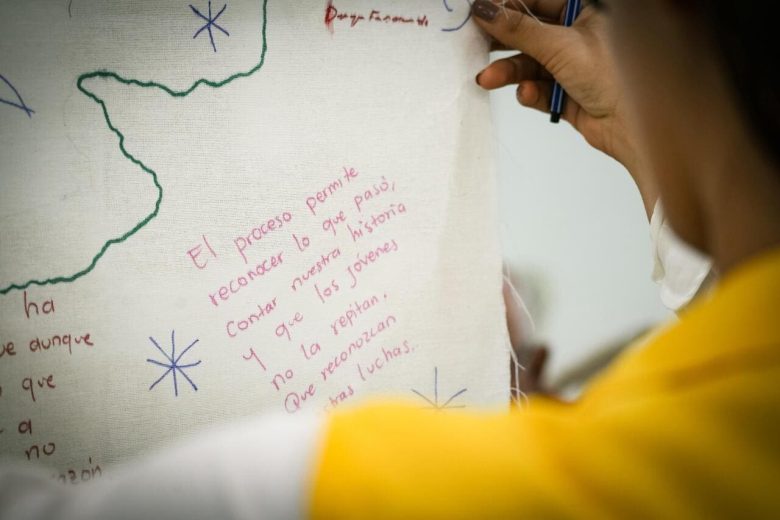 El proceso permite
reconocer lo que pasó,
contar nuestra historia
y que los jóvenes
no la repitan.
Que reconozcan
luchas.
ha
aunque
que
a
no